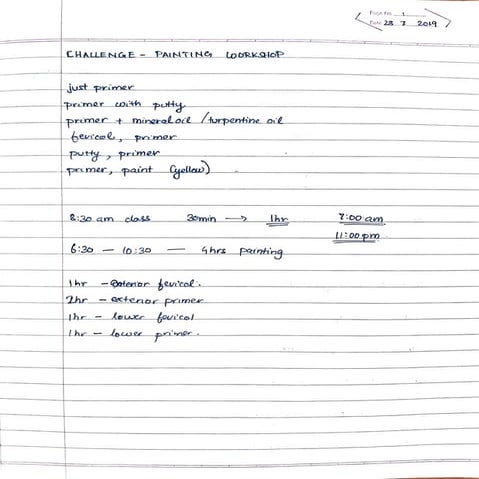 Page No. 1
Date 28 7 2019
CHALLENGE - PAINTING WORKSHOP
just primer
primer with putty
primer + mineral oil / turpentine oil
fevicol, primer
putty, primer
primer, paint (yellow)
8:30 am class 30min → 1hr 7:00 am
11:00 pm
6:30 — 10:30 — 4hrs painting
1hr - exterior fevicol.
2hr - exterior primer
1hr - lower fevicol
1hr - lower primer.